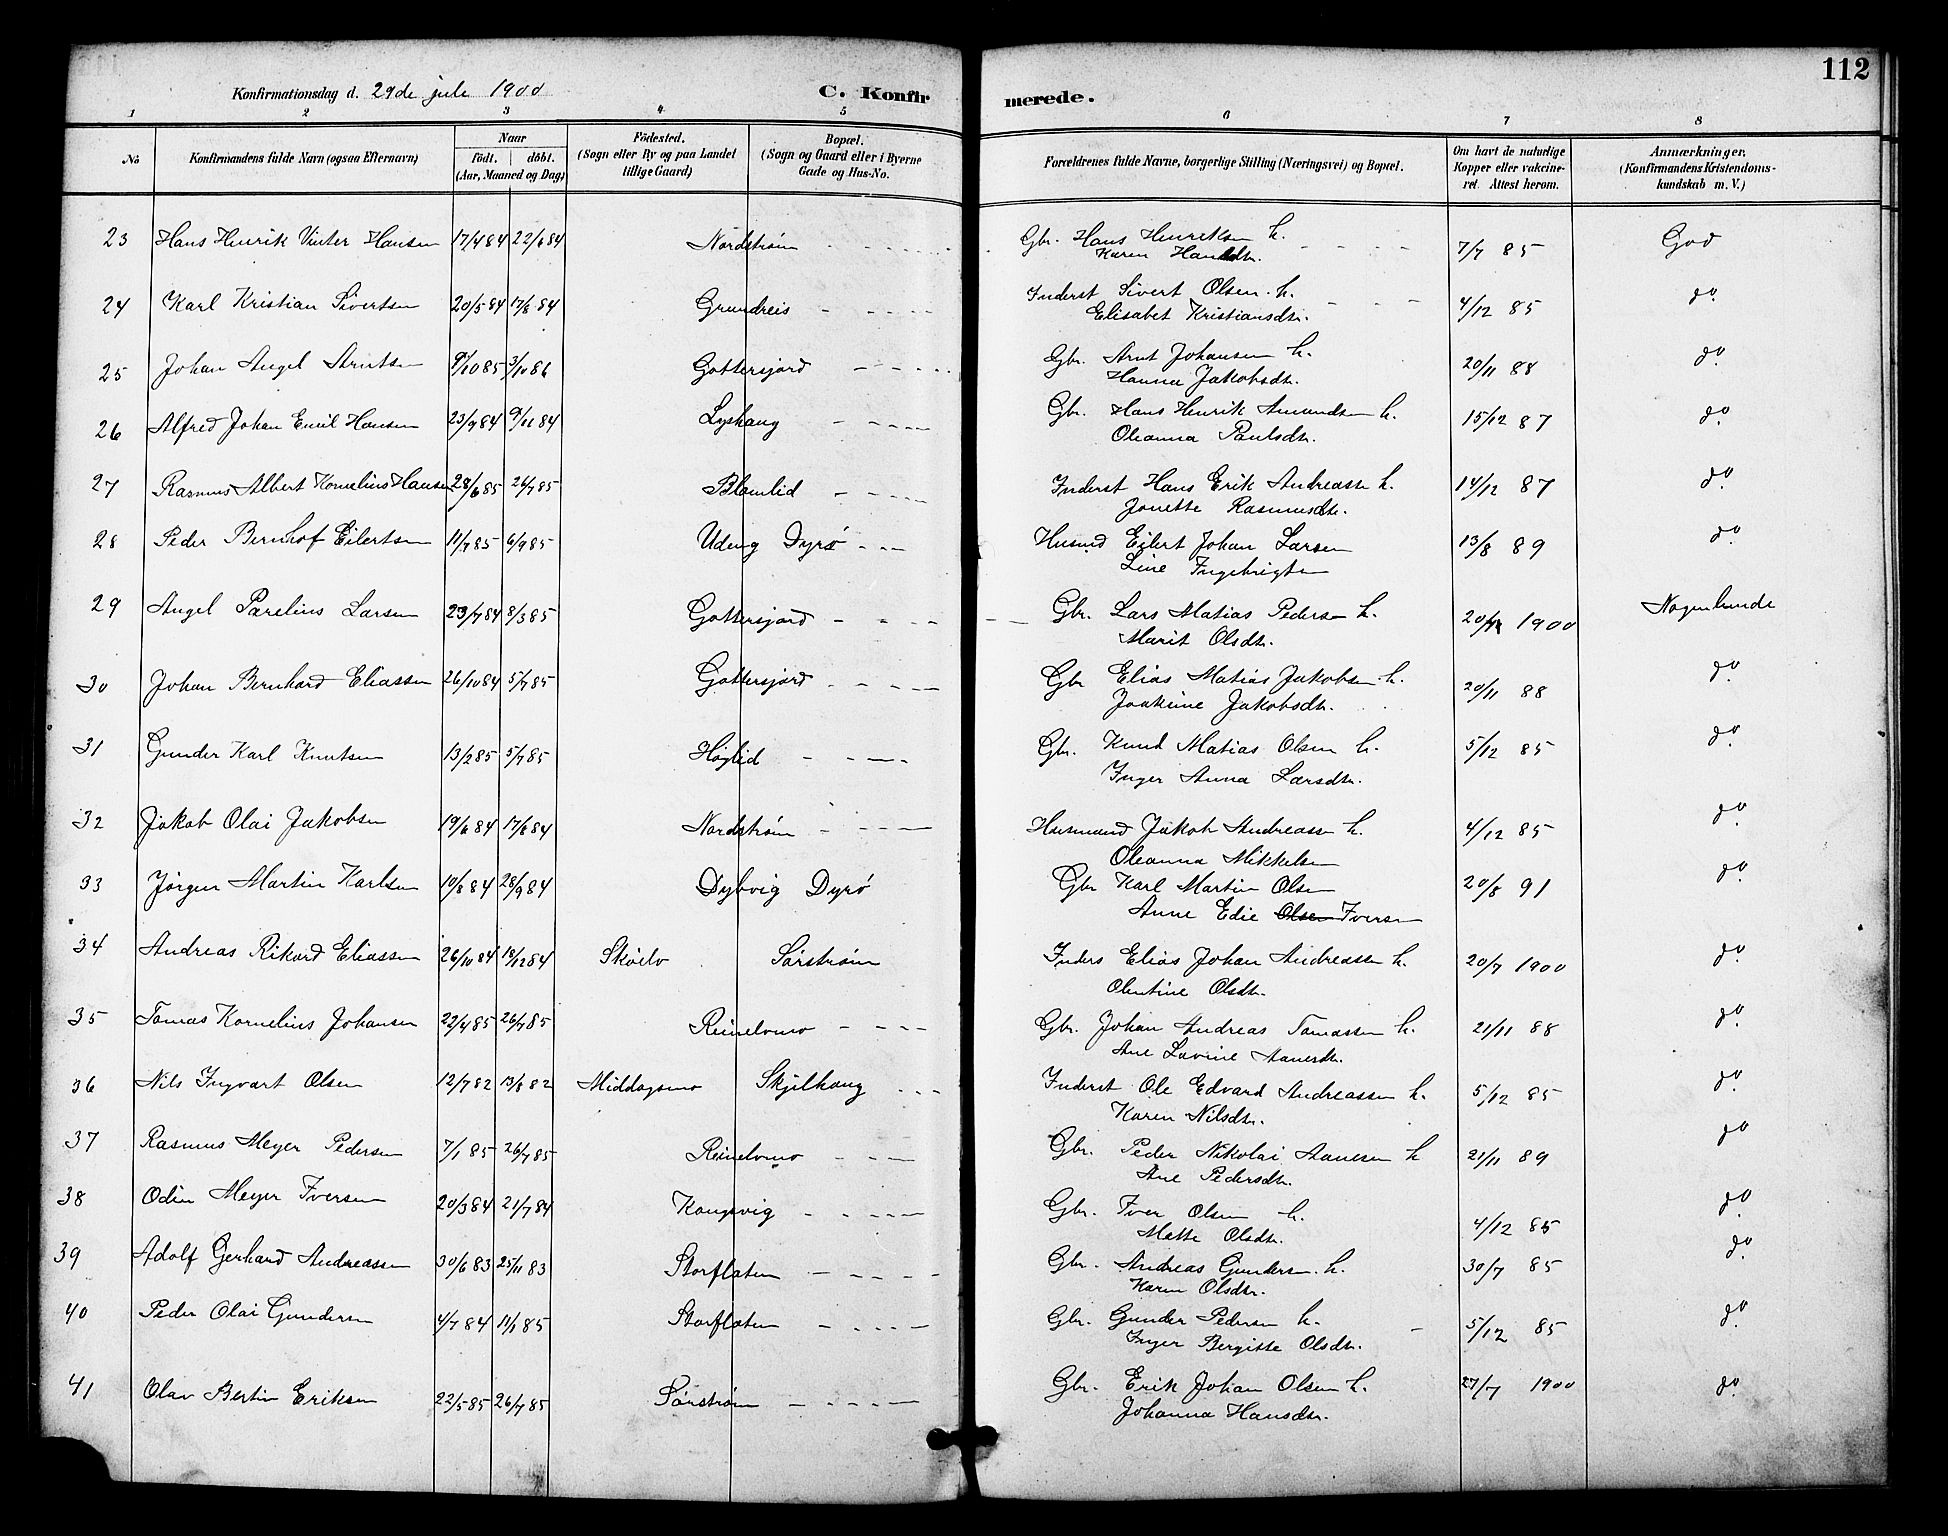 112
Konfirmationsdag d. 29de juli 1900 C. Konfirmerede.
1 2 3 4 5 6 7 8
No Konfirmandens fulde Navn (ogsaa Efternavn) Naar födt. döbt. (Aar, Maaned og Dag) Födested. (Sogn eller By og paa Landet tillige Gaard) Bopæl. (Sogn og Gaard eller i Byerne Gade og Hus-No. Forældrenes fulde Navne, borgerlige Stilling (Næringsvei) og Bopæl. Om havt de naturlige Kopper eller vakcineret. Attest herom. Anmærkninger, (Konfirmandens Kristendomskundskab m. V.)
23 Hans Henrik Vinter Hansen 17/4 84 22/6 84 Nordstrøm Gbr. Hans Henriksen h. 7/7 85 God
Karen Hansdtr.
24 Karl Kristian Sivertsen 20/5 84 17/8 84 Grundreis Inderst Sivert Olsen h. 4/12 85 do.
Elisabet Kristiansdtr.
25 Johan Angel Arntsen 9/10 85 3/10 86 Gottersjord Gbr. Arnt Johansen h. 20/11 88 do.
Hanna Jakobsdtr.
26 Alfred Johan Emil Hansen 23/9 84 9/11 84 Lyshaug Gbr. Hans Henrik Amundsen h. 15/12 87 do.
Oleanna Paulsdtr.
27 Rasmus Albert Kornelius Hansen 28/6 85 26/7 85 Blomlid Inderst Hans Erik Andreassen h. 14/12 87 do.
Jonette Rasmusdtr.
28 Peder Bernhof Eilertsen 11/7 85 6/9 85 Udeng Dyrø Husmd Eilert Johan Larsen 13/8 89 do.
Line Ingebrigtsen
29 Angel Parelius Larsen 23/7 84 8/3 85 Gottersjord Gbr. Lars Matias Pedersen h. 1900 Nogenlunde
Marit Olsdtr.
30 Johan Bernhard Eliassen 26/10 84 5/7 85 Gottersjord Gbr Elias Matias Jakobsen h. 20/11 88 do.
Joakime Jakobsdtr.
31 Gunder Karl Knutsen 13/2 85 5/7 85 Høglid Gbr. Knud Matias Olsen h. 5/12 85 do.
Inger Anna Larsdtr.
32 Jakob Olai Jakobsen 19/6 84 17/8 84 Nordstrøm Husmand Jakob Andreassen h. 4/12 85 do.
Oleanna Mikkelsen
33 Jørgen Martin Karlsen 10/8 84 28/9 84 Dybvig Dyrø Gbr Karl Martin Olsen 20/8 91 do.
Anne Edie Olsen Iversen
34 Andreas Rikard Eliassen 26/10 84 18/12 84 Skøelv Sørstrøm Inders Elias Johan Andreassen h. 20/7 1900 do.
Olentine Olsdtr.
35 Tomas Kornelius Johansen 22/4 85 26/7 85 Reinelvmo Gbr. Johan Andreas Tomassen h. 21/11 88 do.
Ane Lovine
36 Nils Ingvart Olsen 12/7 82 13/8 82 Middagsmo Skjelhaug Inderst Ole Edvard Andreassen h. 5/12 85 do.
Karen Nilsdtr.
37 Rasmus Meyer Pedersen 7/1 85 26/7 85 Reinelvmo Gbr. Peder Nikolai Hansen h 21/11 89 do.
Ane Pedersdtr.
38 Odin Meyer Iversen 20/3 84 21/7 84 Kongsvig Gbr. Iver Olsen h. 4/12 85 do.
Mette Olsdtr.
39 Adolf Gerhard Andreassen 30/6 83 25/11 83 Storflaten Gbr. Andreas Gundersen h. 30/7 85 do.
Karen Olsdtr.
40 Peder Olai Gundersen 4/7 84 11/1 85 Storflaten Gbr. Gunder Pedersen h. 5/12 85 do.
Inger Bergitte Olsdtr.
41 Olav Bertin Eriksen 22/5 85 26/7 85 Sørstrøm Gbr. Erik Johan Olsen h. 27/7 1900 do.
Johanna Hansdtr.